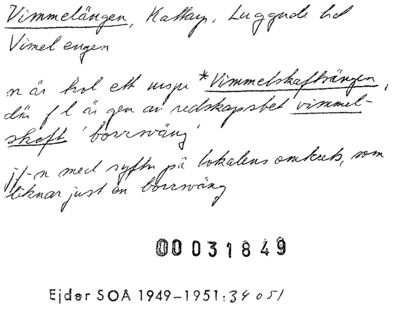 Vimmelängen, Kattarp, Luggude hd
Vimelengen
n är hel ett urspr *Vimmelskaftsängen,
där f l är gen av redskapsbet vimmel-
skaft 'borrsväng'
jf-n med syftn på lokalens omkrets, som
liknar just en borrsväng
00031849
Ejder SOA 1949-1951:34 051